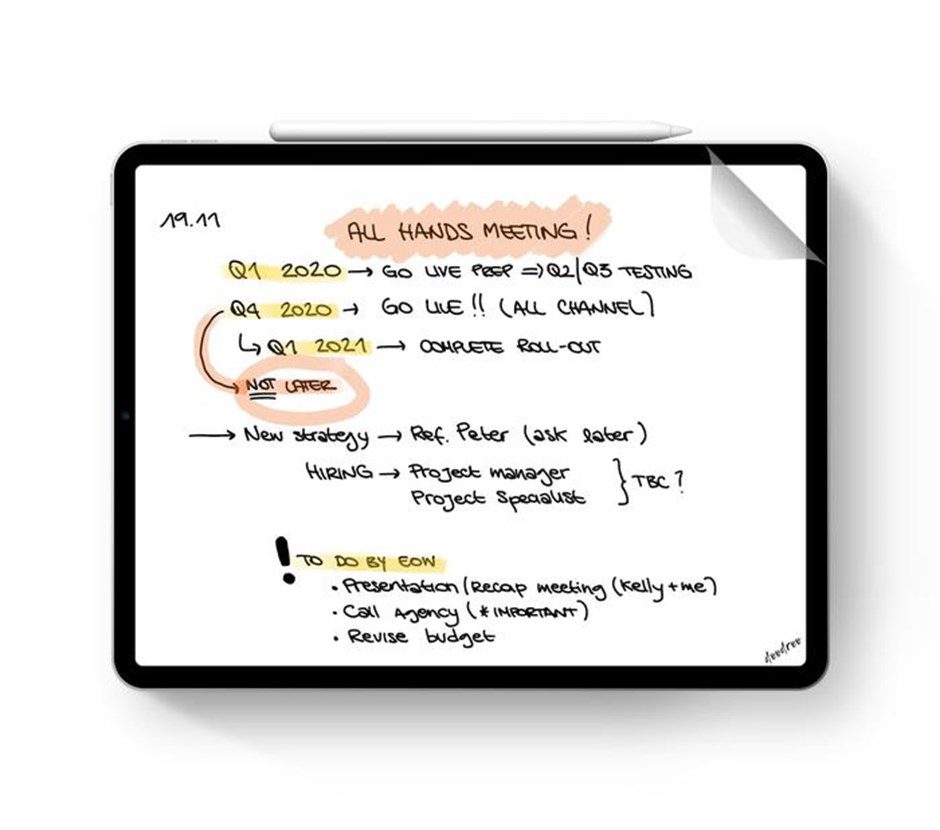 19.11
ALL HANDS MEETING!
Q1 2020 → GO LIVE PREP => Q2/Q3 TESTING
Q4 2020 → GO LIVE!! (ALL CHANNEL)
↳ Q1 2021 → COMPLETE ROLL-OUT
NOT LATER
→ New strategy → Ref. Peter (ask later)
HIRING → Project manager
Project Specialist } TBC?
! TO DO BY EOW
• Presentation/Recap meeting (Kelly+me)
• Call Agency (*IMPORTANT)
• Revise budget
deedree